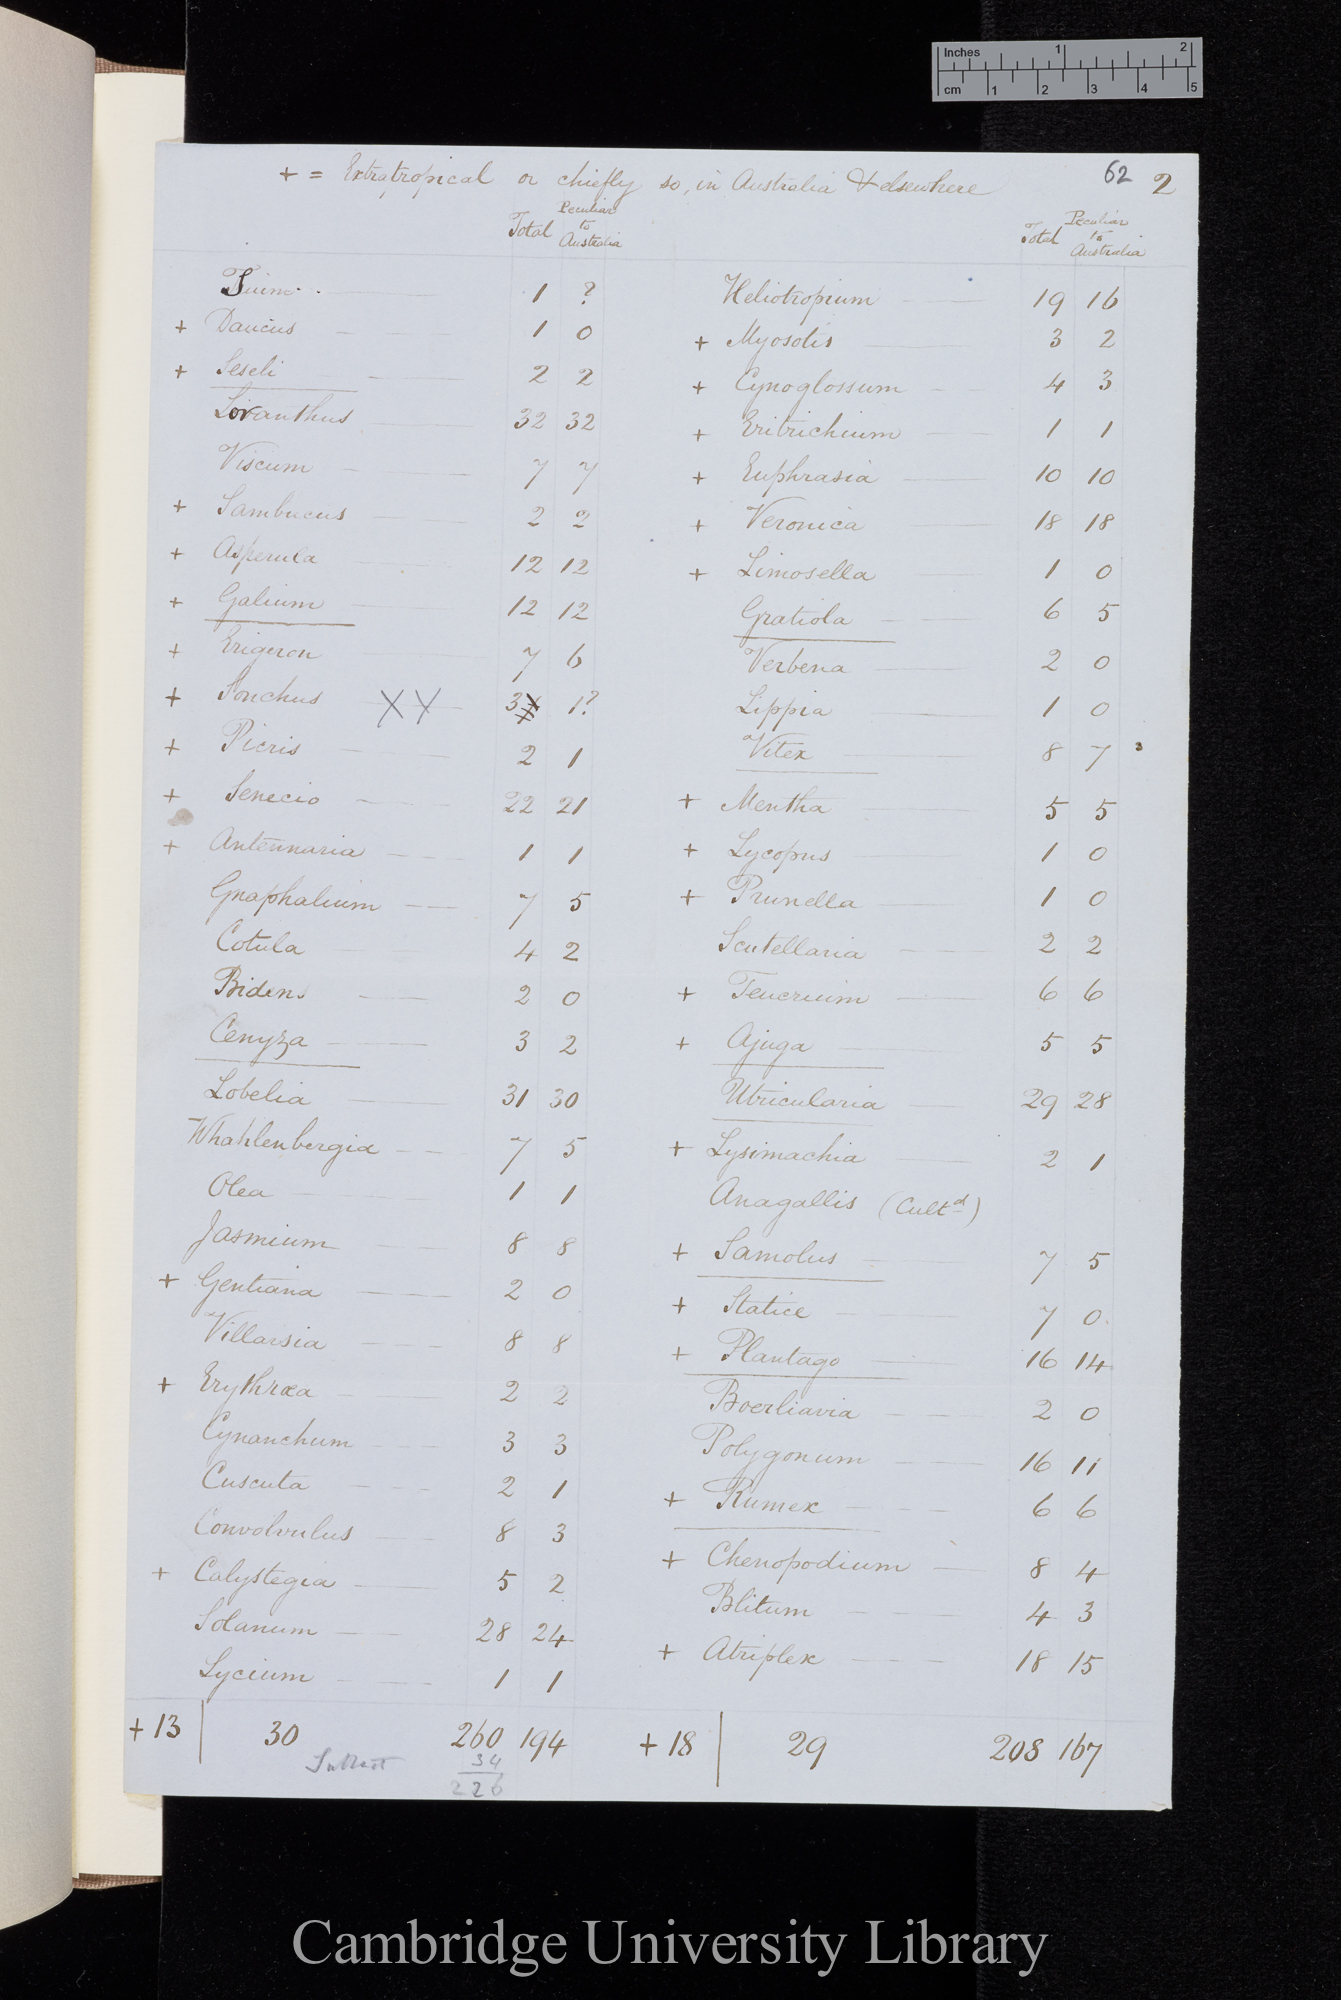 Inches 1 2
cm 1 2 3 4 5
62 2
+ = Extratropical or chiefly so, in Australia & elsewhere
Total Peculiar to Australia
Sium 1 ?
+ Daucus 1 0
+ Seseli 2 2
Loranthus 32 32
Viscum 7 7
+ Sambucus 2 2
+ Asperula 12 12
+ Galium 12 12
+ Erigeron 7 6
+ Sonchus XX 3 1?
+ Picris 2 1
+ Senecio 22 21
+ Antennaria 1 1
Gnaphalium 7 5
Cotula 4 2
Bidens 2 0
Conyza 3 2
Lobelia 31 30
Whahlenbergia 7 5
Olea 1 1
Jasmium 8 8
+ Gentiana 2 0
Villarsia 8 8
+ Erythræa 2 2
Cynanchum 3 3
Cuscuta 2 1
Convolvulus 8 3
+ Calystegia 5 2
Solanum 28 24
Lycium 1 1
+13 30 260 194
Subtract 34
226
Total Peculiar to Australia
Heliotropium 19 16
+ Myosotis 3 2
+ Cynoglossum 4 3
+ Eritrichium 1 1
+ Euphrasia 10 10
+ Veronica 18 18
+ Limosella 1 0
Gratiola 6 5
Verbena 2 0
Lippia 1 0
Vitex 8 7
+ Mentha 5 5
+ Lycopus 1 0
+ Prunella 1 0
Scutellaria 2 2
+ Teucrium 6 6
+ Ajuga 5 5
Utricularia 29 28
+ Lysimachia 2 1
Anagallis (Cultd)
+ Samolus 7 5
+ Statice 7 0
+ Plantago 16 14
Boerliavia 2 0
Polygonum 16 11
+ Rumex 6 6
+ Chenopodium 8 4
Blitum 4 3
+ Atriplex 18 15
+18 29 208 167
Cambridge University Library